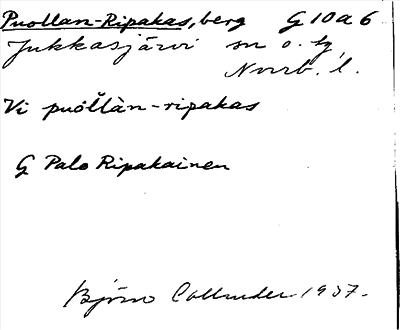 Puollan-Ripakas, berg G 10 a 6
Jukkasjärvi sn o. tg,
Norrb. l.
Vi puollàn-ripakas
G Palo Ripakainen
Björn Collinder 1937.